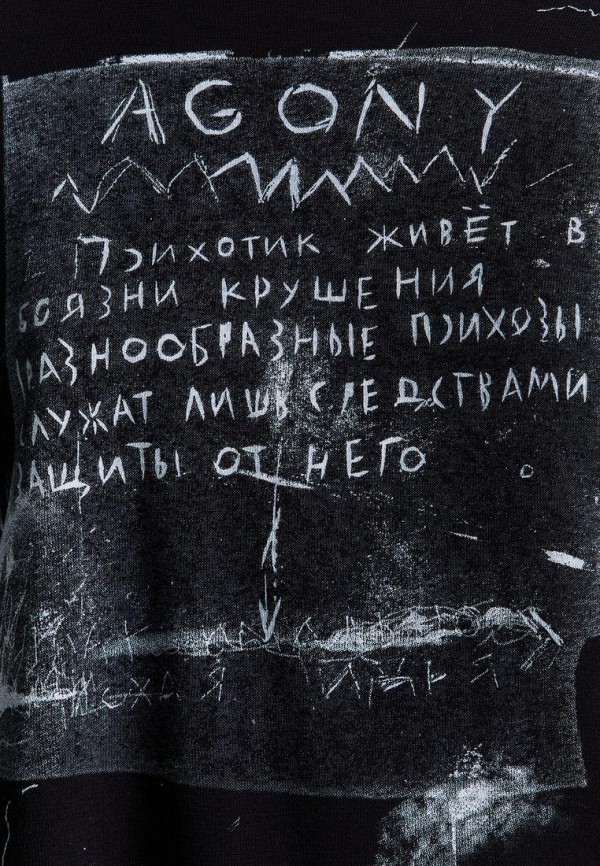 AGONY
ПСИХОТИК ЖИВЁТ В
БОЯЗНИ КРУШЕНИЯ
РАЗНООБРАЗНЫЕ ПСИХОЗЫ
СЛУЖАТ ЛИШЬ СРЕДСТВАМИ
ЗАЩИТЫ ОТ НЕГО